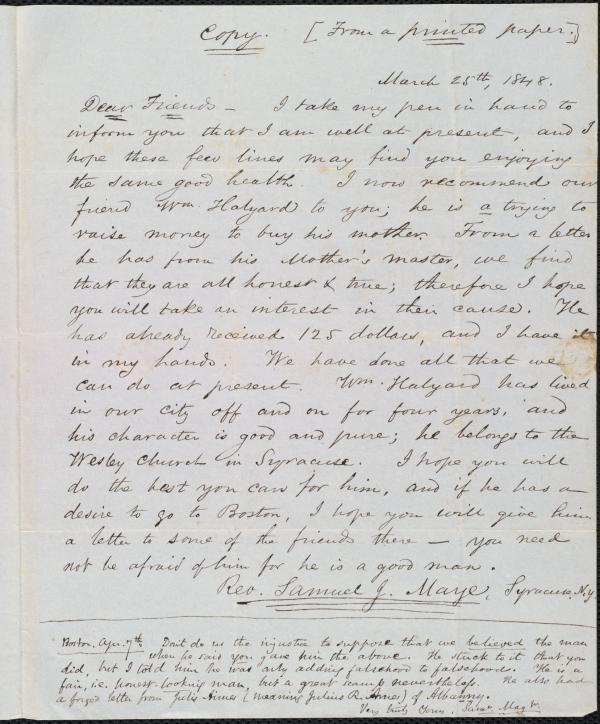 Copy. [From a printed paper.]
March 25th, 1848.
Dear Friends - I take my pen in hand to
inform you that I am well at present, and I
hope these few lines may find you enjoying
the same good health. I now recommend our
friend Wm. Halyard to you; he is a trying to
raise money to buy his mother. From a letter
he has from his Mother's master, we find
that they are all honest & true; therefore I hope
you will take an interest in their cause. He
has already received 125 dollars, and I have it
in my hands. We have done all that we
can do at present. Wm. Halyard has lived
in our city off and on for four years, and
his character is good and pure; he belongs to the
Wesley Church in Syracuse. I hope you will
do the best you can for him, and if he has a
desire to go to Boston, I hope you will give him
a letter to some of the friends there — you need
not be afraid of him for he is a good man.
Rev. Samuel J. Maye, Syracuse, N.Y
Boston, Apr. 7th. Don't do us the injustice to suppose that we believed the man
when he said you gave him the above. He stuck to it that you
did, but I told him he was only adding falsehood to falsehoods. He is a
fair, i.e. honest-looking man, but a great scamp nevertheless. He also had
a forged letter from Julis Aimes (meaning Julius R. Ames) of Albanny.
Very truly Yours, Saml. May Jr.